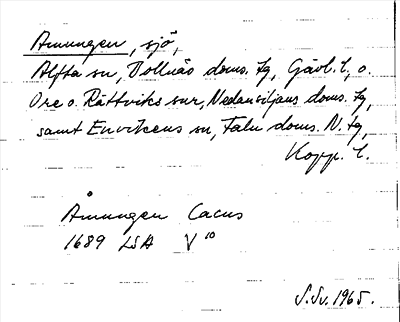 Amungen, sjö,
Alfta sn, Bollnäs doms. tg, Gävl. l, o.
Ore o. Rättviks snr, Nedansiljans doms. tg,
samt Envikens sn, Falu doms. N. tg,
Kopp. l.
Åmungen Lacus
1689 LSA V 10
S. Sv. 1965.